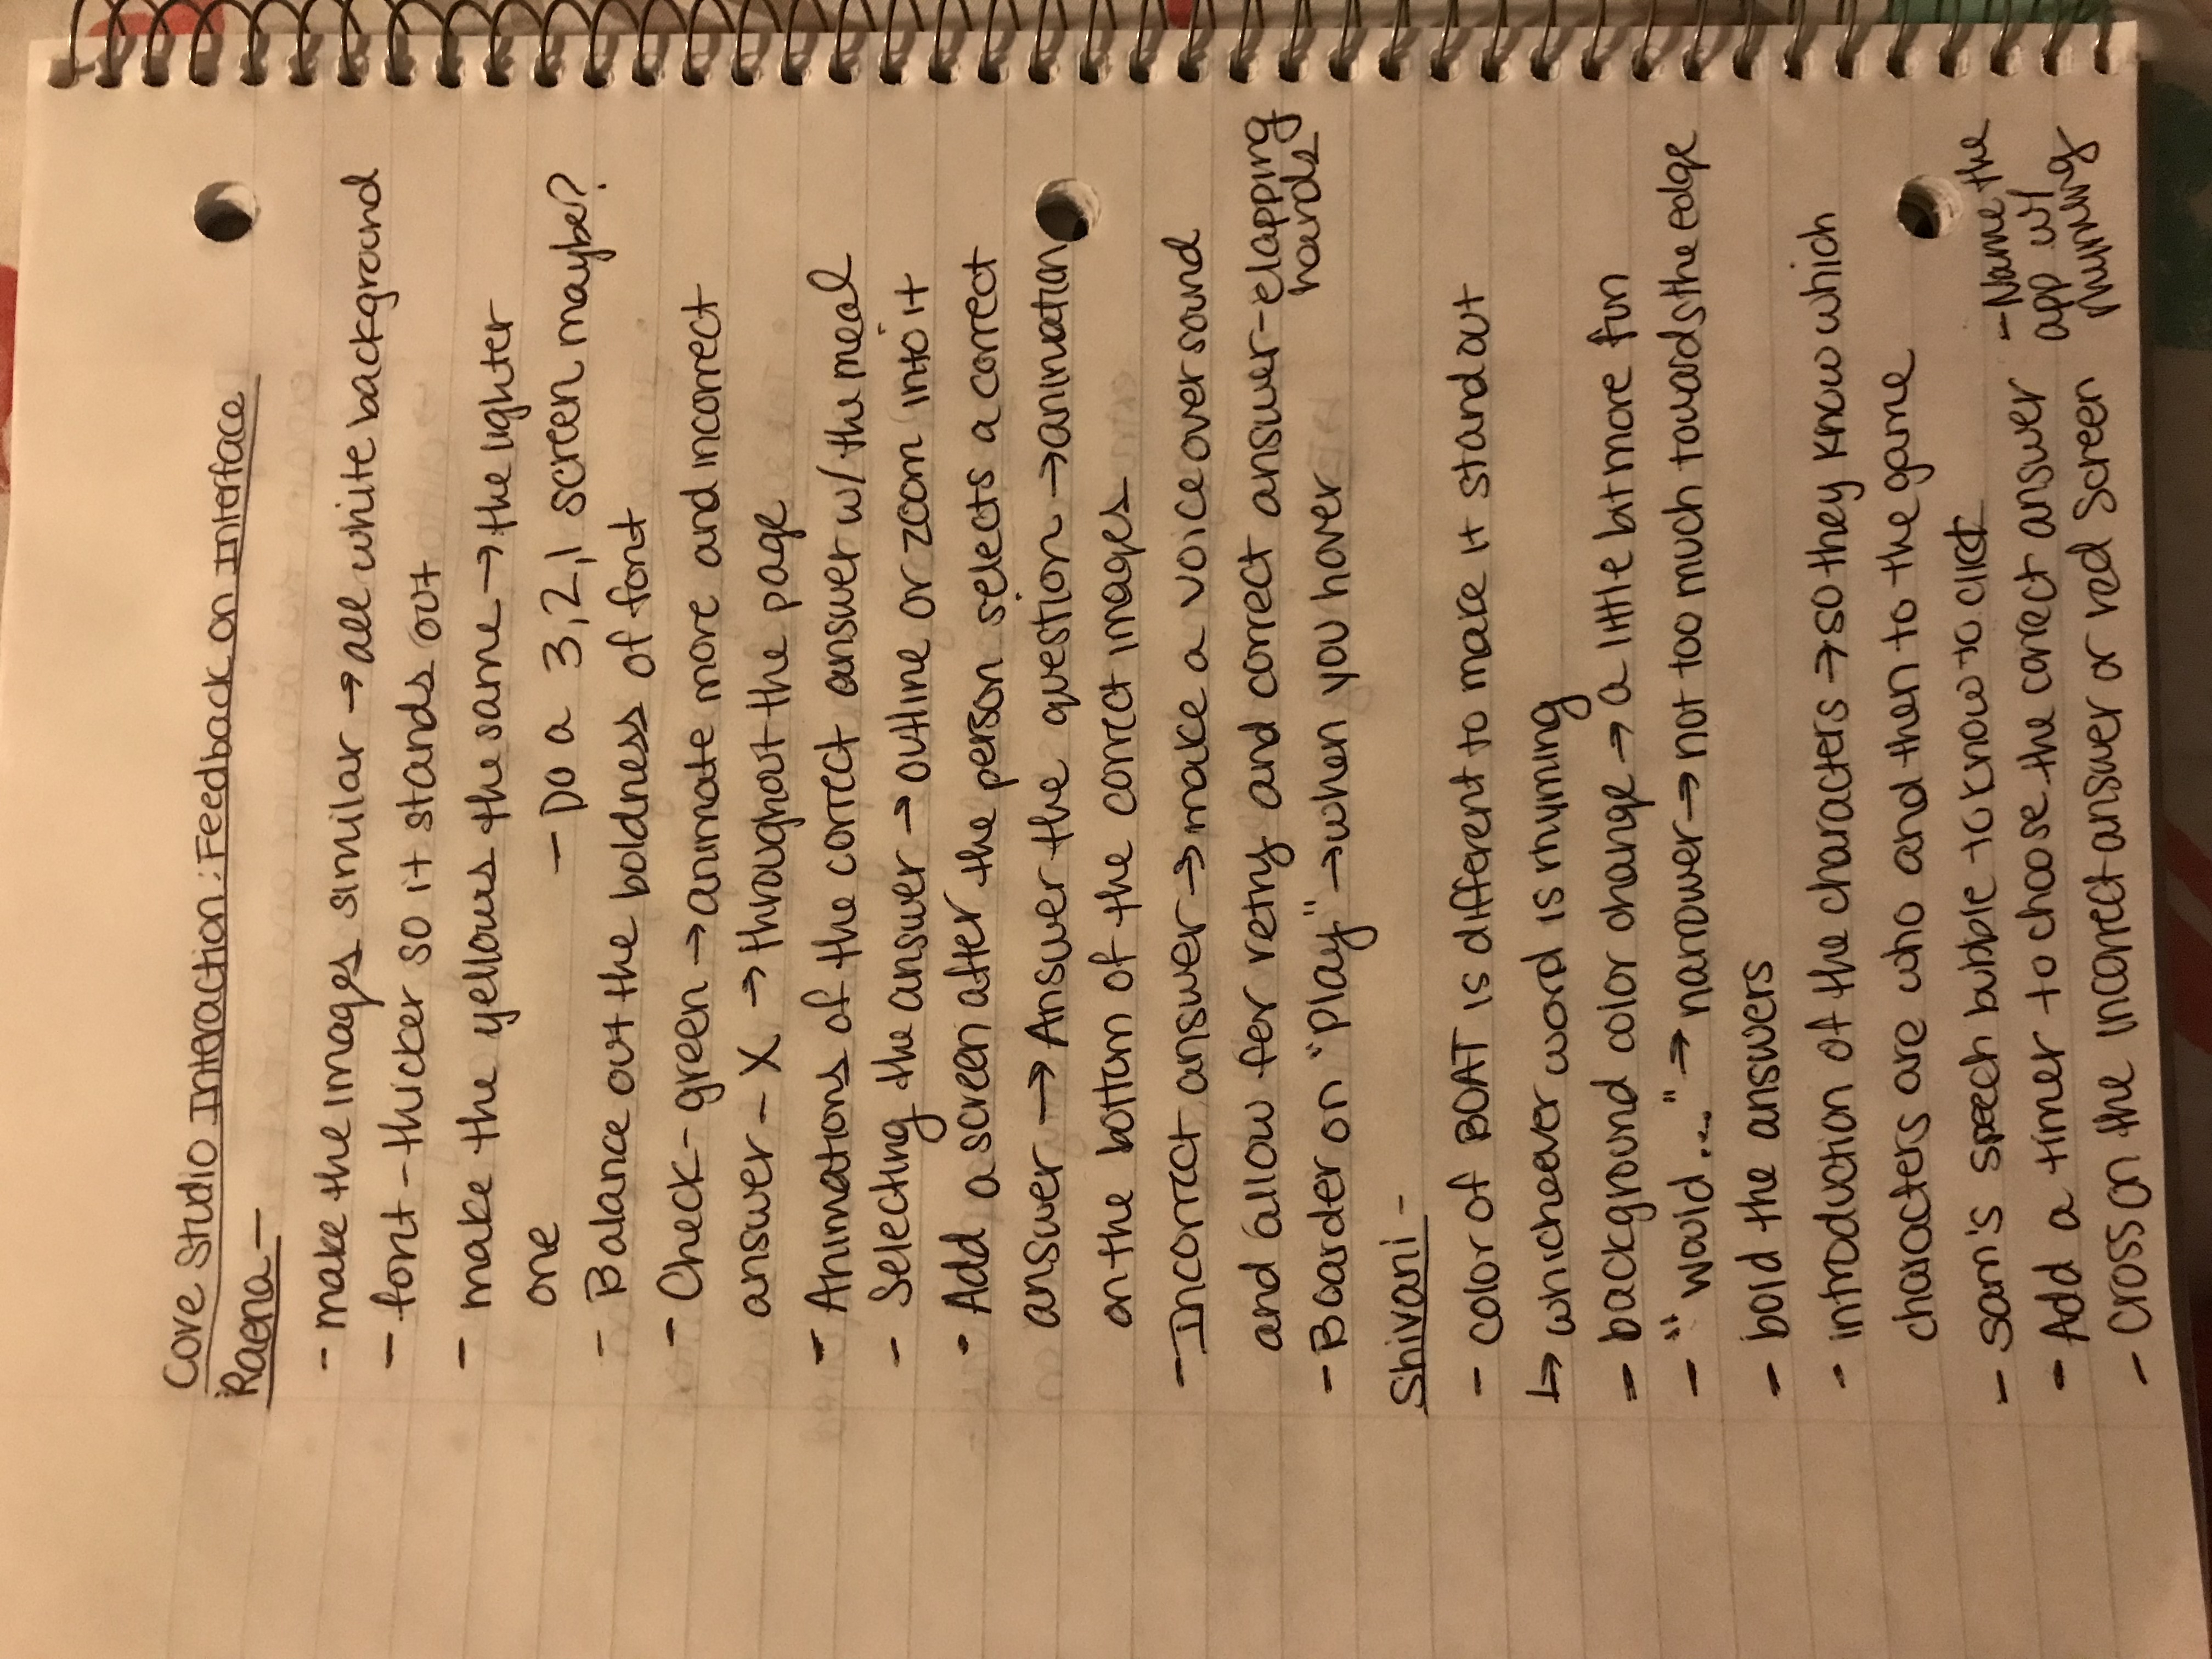 Core Studio Interaction: Feedback on Interface
Raena —
- make the images similar → all white background
- font - thicker so it stands out
- make the yellows the same → the lighter
one
- Do a 3,2,1 screen maybe?
- Balance out the boldness of font
- Check - green → animate more and incorrect
answer - X → throughout the page
- Animations of the correct answer w/ the meal
- Selecting the answer → outline or zoom into it
- Add a screen after the person selects a correct
answer → Answer the question → animation
on the bottom of the correct images
- Incorrect answer → make a voice over sound
and allow for retry and correct answer - clapping
hands
- Boarder on "Play" → when you hover
Shivani -
- color of BOAT is different to make it stand out
↳ whicheever word is rhyming
- background color change → a little bit more fun
- "Would...." → narrower → not too much towards the edge
- bold the answers
- introduction of the characters → so they know which
characters are who and then to the game
- sam's speech bubble to know to click
- Add a timer to choose the correct answer
- Cross on the incorrect answer or red screen
- Name the
app w/
rhyming